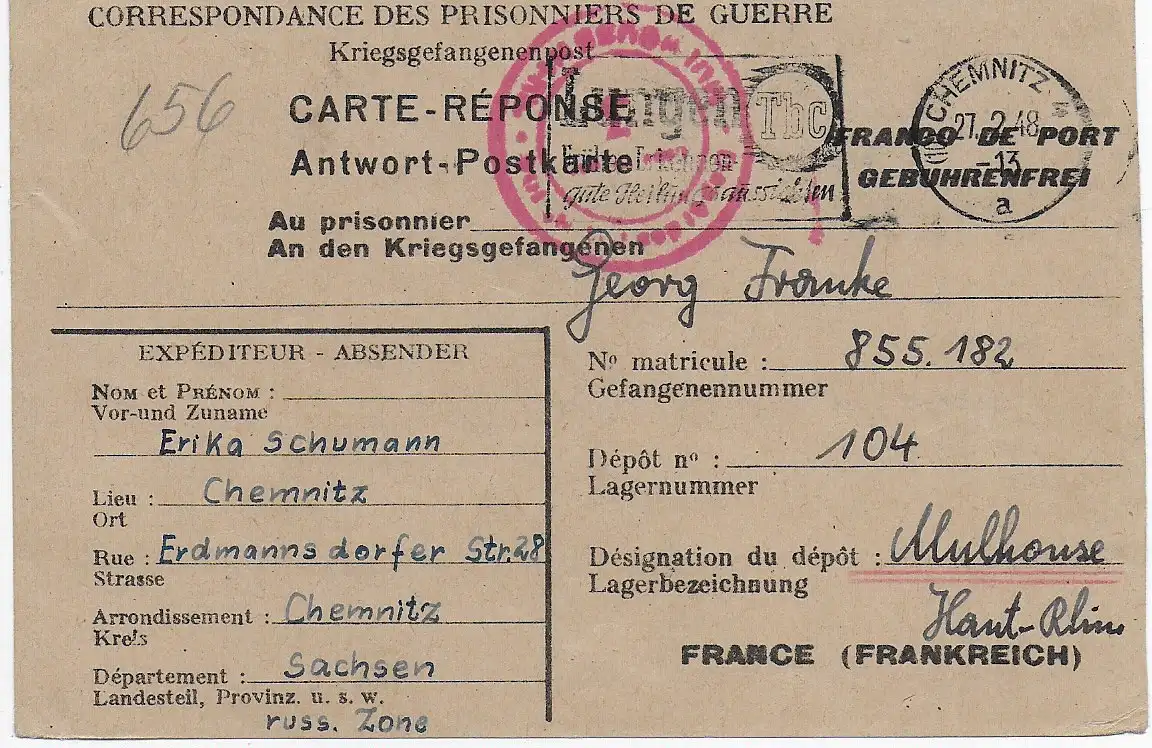 CORRESPONDANCE DES PRISONNIERS DE GUERRE
Kriegsgefangenenpost
656
CARTE-RÉPONSE
Antwort-Postkarte
Lungen Tbc
gute Heilungsaussichten
CHEMNITZ
27.2.48
-13
a
FRANCO DE PORT
GEBÜHRENFREI
Au prisonnier
An den Kriegsgefangenen
Georg Franke
EXPÉDITEUR - ABSENDER
Nom et Prénom :
Vor-und Zuname
Erika Schumann
Lieu : Chemnitz
Ort
Rue : Erdmannsdorfer Str.28
Strasse
Arrondissement : Chemnitz
Kreis
Département : Sachsen
Landesteil, Provinz. u. s. w.
russ. Zone
No matricule : 855.182
Gefangenennummer
Dépôt no : 104
Lagernummer
Désignation du dépôt : Mulhouse
Lagerbezeichnung
Haut-Rhin
FRANCE (FRANKREICH)